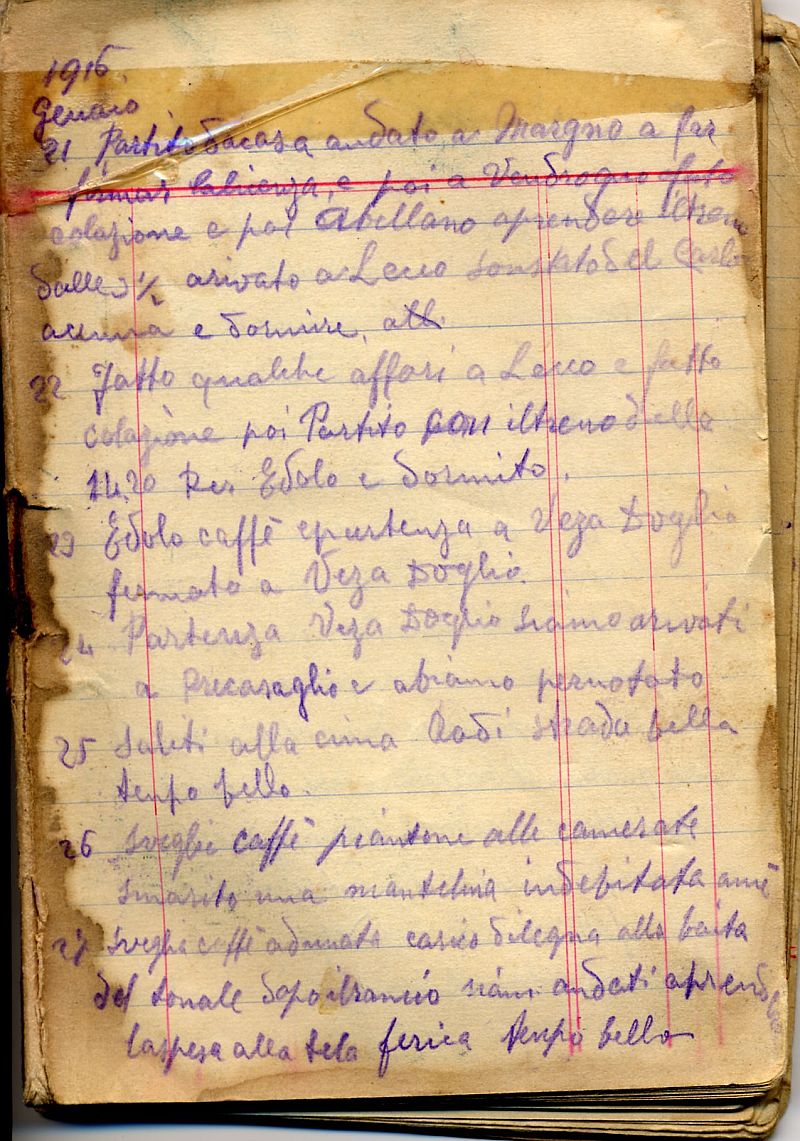 1916
Genaio
21 Partito dacasa andato a Margno a far
firmar lalicenza, e poi a Vendrogno fato
colazione e poi abellano aprendere iltreno
dalle 3½ arivato a Lecco del Carlo
acenna e dormire.
22 Fatto qualche affari a Lecco e fatto
colazione poi Partito con iltreno delle
14.20 Per Edolo e dormito.
23 Edolo caffè epartenza a Veza Doglio
fermato a Veza Doglio.
24 Partenza Veza Doglio siamo arivati
a Precasaglio e abiamo pernotato
25 Saliti alla cima Cadi strada bella
tenpo bello.
26 Sveglie caffè piantone alle camerate
Smarito una mantelina indebitata amè
27 Sveglia caffè adunata carico dilegna alla baita
del tonale dopoilrancio siam andati aprendere
laspesa alla tela ferica tenpo bello